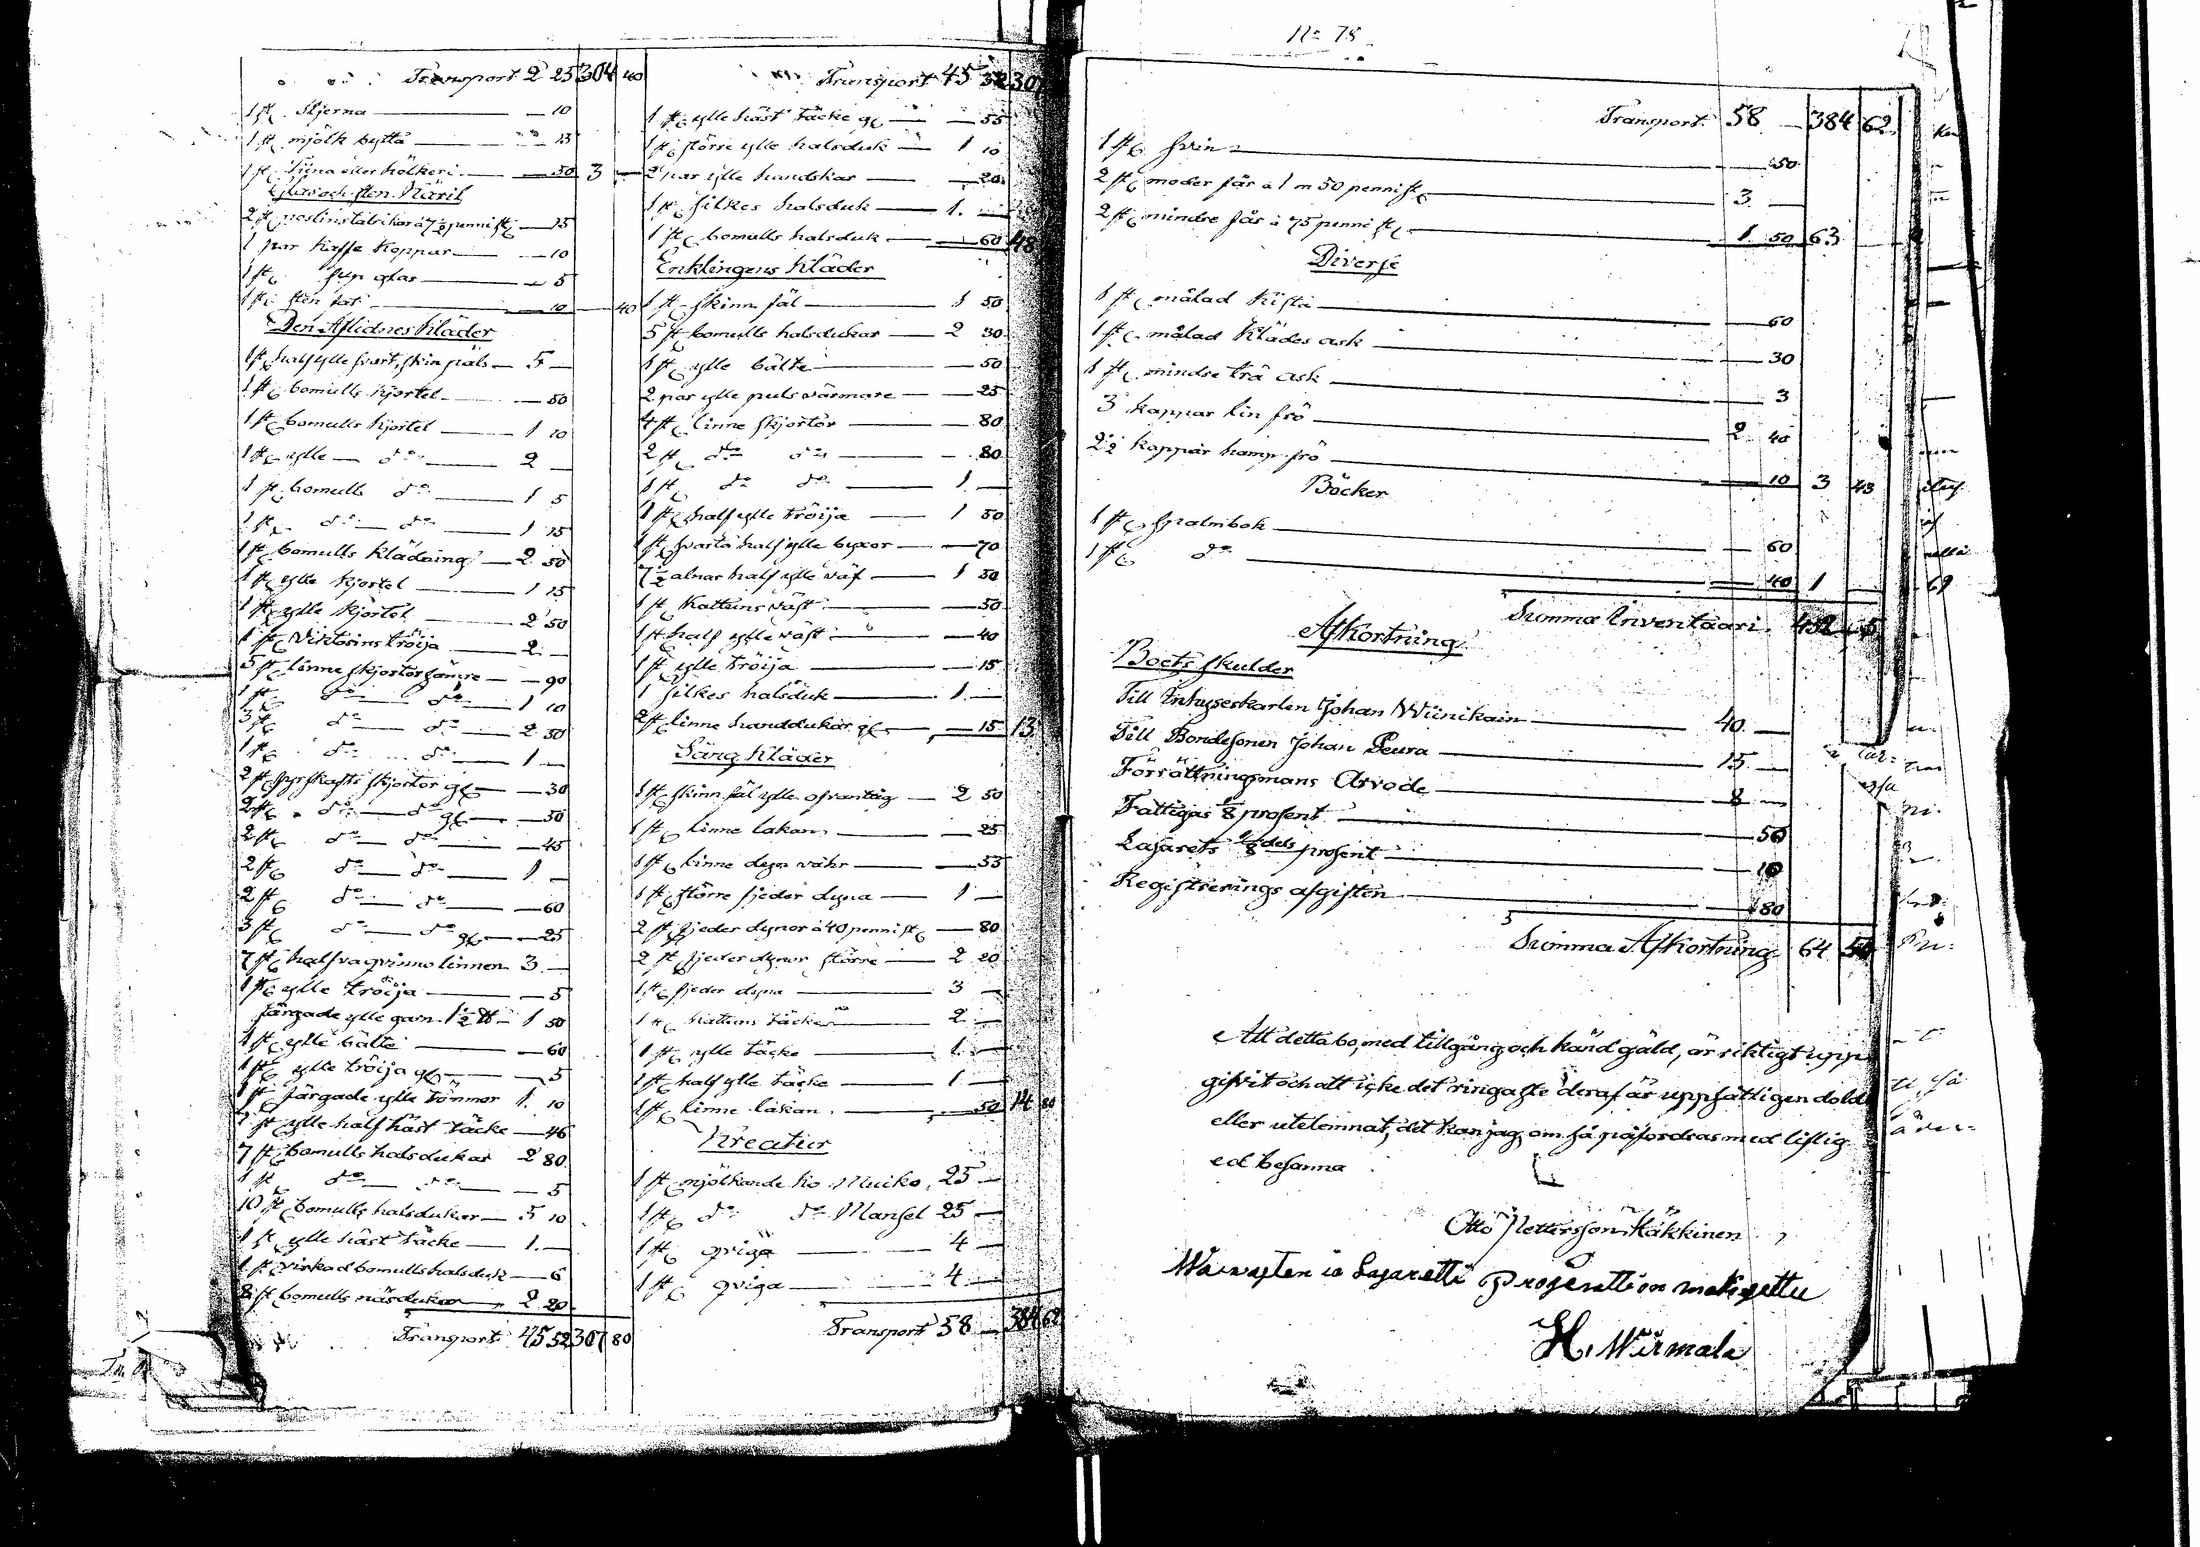 Transport 2 25 304 40
1 st. Stjerna — 10
1 st. mjölk bytta — 15
1 st. eller hölkeri — 50 3 —
Glas och sten Käril
2 st. postinstalrikar à 7½ penni st. — 15
1 par Kaffe Koppar — 10
1 st. sup glas — 5
1 st. sten fat — 10 — 40
Den Aflidnes Kläder
1 st. half ylle svart, skin päls — 5 —
1 st. bomulls kjortel — 50
1 st. bomulls kjortel — 1 10
1 st. ylle — do — 2 —
1 st. bomulls do — 1 5
1 st. do — do — 1 15
1 st. bomulls klädning — 2 50
1 st. ylle kjortel — 1 15
1 st. ylle kjortel — 2 50
1 st. tröija — 2 —
5 st. linne skjortor sämre — 90
1 st. do do — 1 10
3 st. do — do — 2 50
1 st. do do — 1 —
2 st. fyrskafts skjortor gl. — 30
2 st. do — do gl. — 50
2 st. do — do — 45
2 st. do — do — 1 —
2 st. do — do — 60
3 st. do — do gl. — 25
7 st. halfva qvinno linnen 3 —
1 st. ylle tröija — 5
färgade ylle garn 1½ ℔ — 1 50
1 st. ylle bälte — 60
1 st. ylle tröija gl. — 5
1 st. färgade ylle 1 10
st. ylle half häst täcke — 46
7 st. bomulls halsdukar 2 80
1 st. do — do — 5
10 st. bomulls halsdukar — 5 10
1 st. ylle häst täcke — 1 —
1 st. virkad bomulls halsduk — 6
8 st. bomulls näsdukar 2 20
Transport 45 52 307 80
Transport 45 52 307
1 st. ylle häst täcke gl. — 55
1 st. större ylle halsduk — 1 10
2 par ylle handskar — 20
1 st. silkes halsduk — 1 —
1 st. bomulls halsduk — 60 48
Enklingens Kläder
1 st. skinn fäl — 1 50
5 st. bomulls halsdukar — 2 30
1 st. ylle bälte — 50
2 par ylle puls värmare — 25
4 st. linne skjortor — 80
2 st. do do — 80
1 st. do do — 1 —
1 st. half ylle tröija — 1 50
1 st. svarta half ylle byxor — 70
7½ alnar half ylle väf — 1 50
1 st. kattuns väst — 50
1 st. half ylle väst — 40
1 st. ylle tröija — 15
1 silkes halsduk — 1 —
2 st. linne handdukar gl. — 15 13
Säng Kläder
1 st. skinn fäl ylle ofvantäg — 2 50
1 st. linne lakan — 25
1 st. linne dyn vahr — 55
1 st. större fjeder dyna — 1 —
2 st. fjeder dynor à 40 penni st. — 80
2 st. fjeder dynor större — 2 20
1 st. fjeder dyna — 3 —
1 st. kattuns täcke — 2 —
1 st. ylle täcke — 1 —
1 st. half ylle täcke — 1 —
1 st. linne lakan — 50 14 80
Kreatur
1 st. mjölkande ko Muiko, 25 —
1 st. do do Mansel 25 —
1 st. qviga — 4 —
1 st. qviga — 4 —
Transport 58 — 384 62
No 78
Transport 58 — 384 62
1 st. svin — 50
2 st. moder får à 1 m 50 penni st. — 3 —
2 st. mindre får à 75 penni st. — 1 50 63
Diverse
1 st. målad Kista — 60
1 st. målad Klädes ask — 30
1 st. mindre trä ask — 3
3 kappar lin frö — 2 40
2½ kappar hamp frö — 10 3 43
Böcker
1 st. psalmbok — 60
1 st. do — 40 1
Summa Inventaari 452 5
Afkortning
Boets skulder
Till Inhyseskarlen Johan Wiinikain — 40 —
Till Bondesonen Johan Peura — 15 —
Förrättningsmans Arvode — 8 —
Fattigas ⅛ prosent — 56
Lasarets ⅛dels prosent — 10
Registrerings afgiften — 80
Summa Afkortning 64 54
Att detta bo, med tillgång och känd gäld, är riktigt upp
gifvit och att icke det ringaste deraf är uppsåtligen dold
eller utelemnat, det kan jag, om så påfordras med liflig
ed besanna
Otto Pettersson Häkkinen
Waiwasten ia Lasaretti Prosenttion maksettu
H. Wirmala